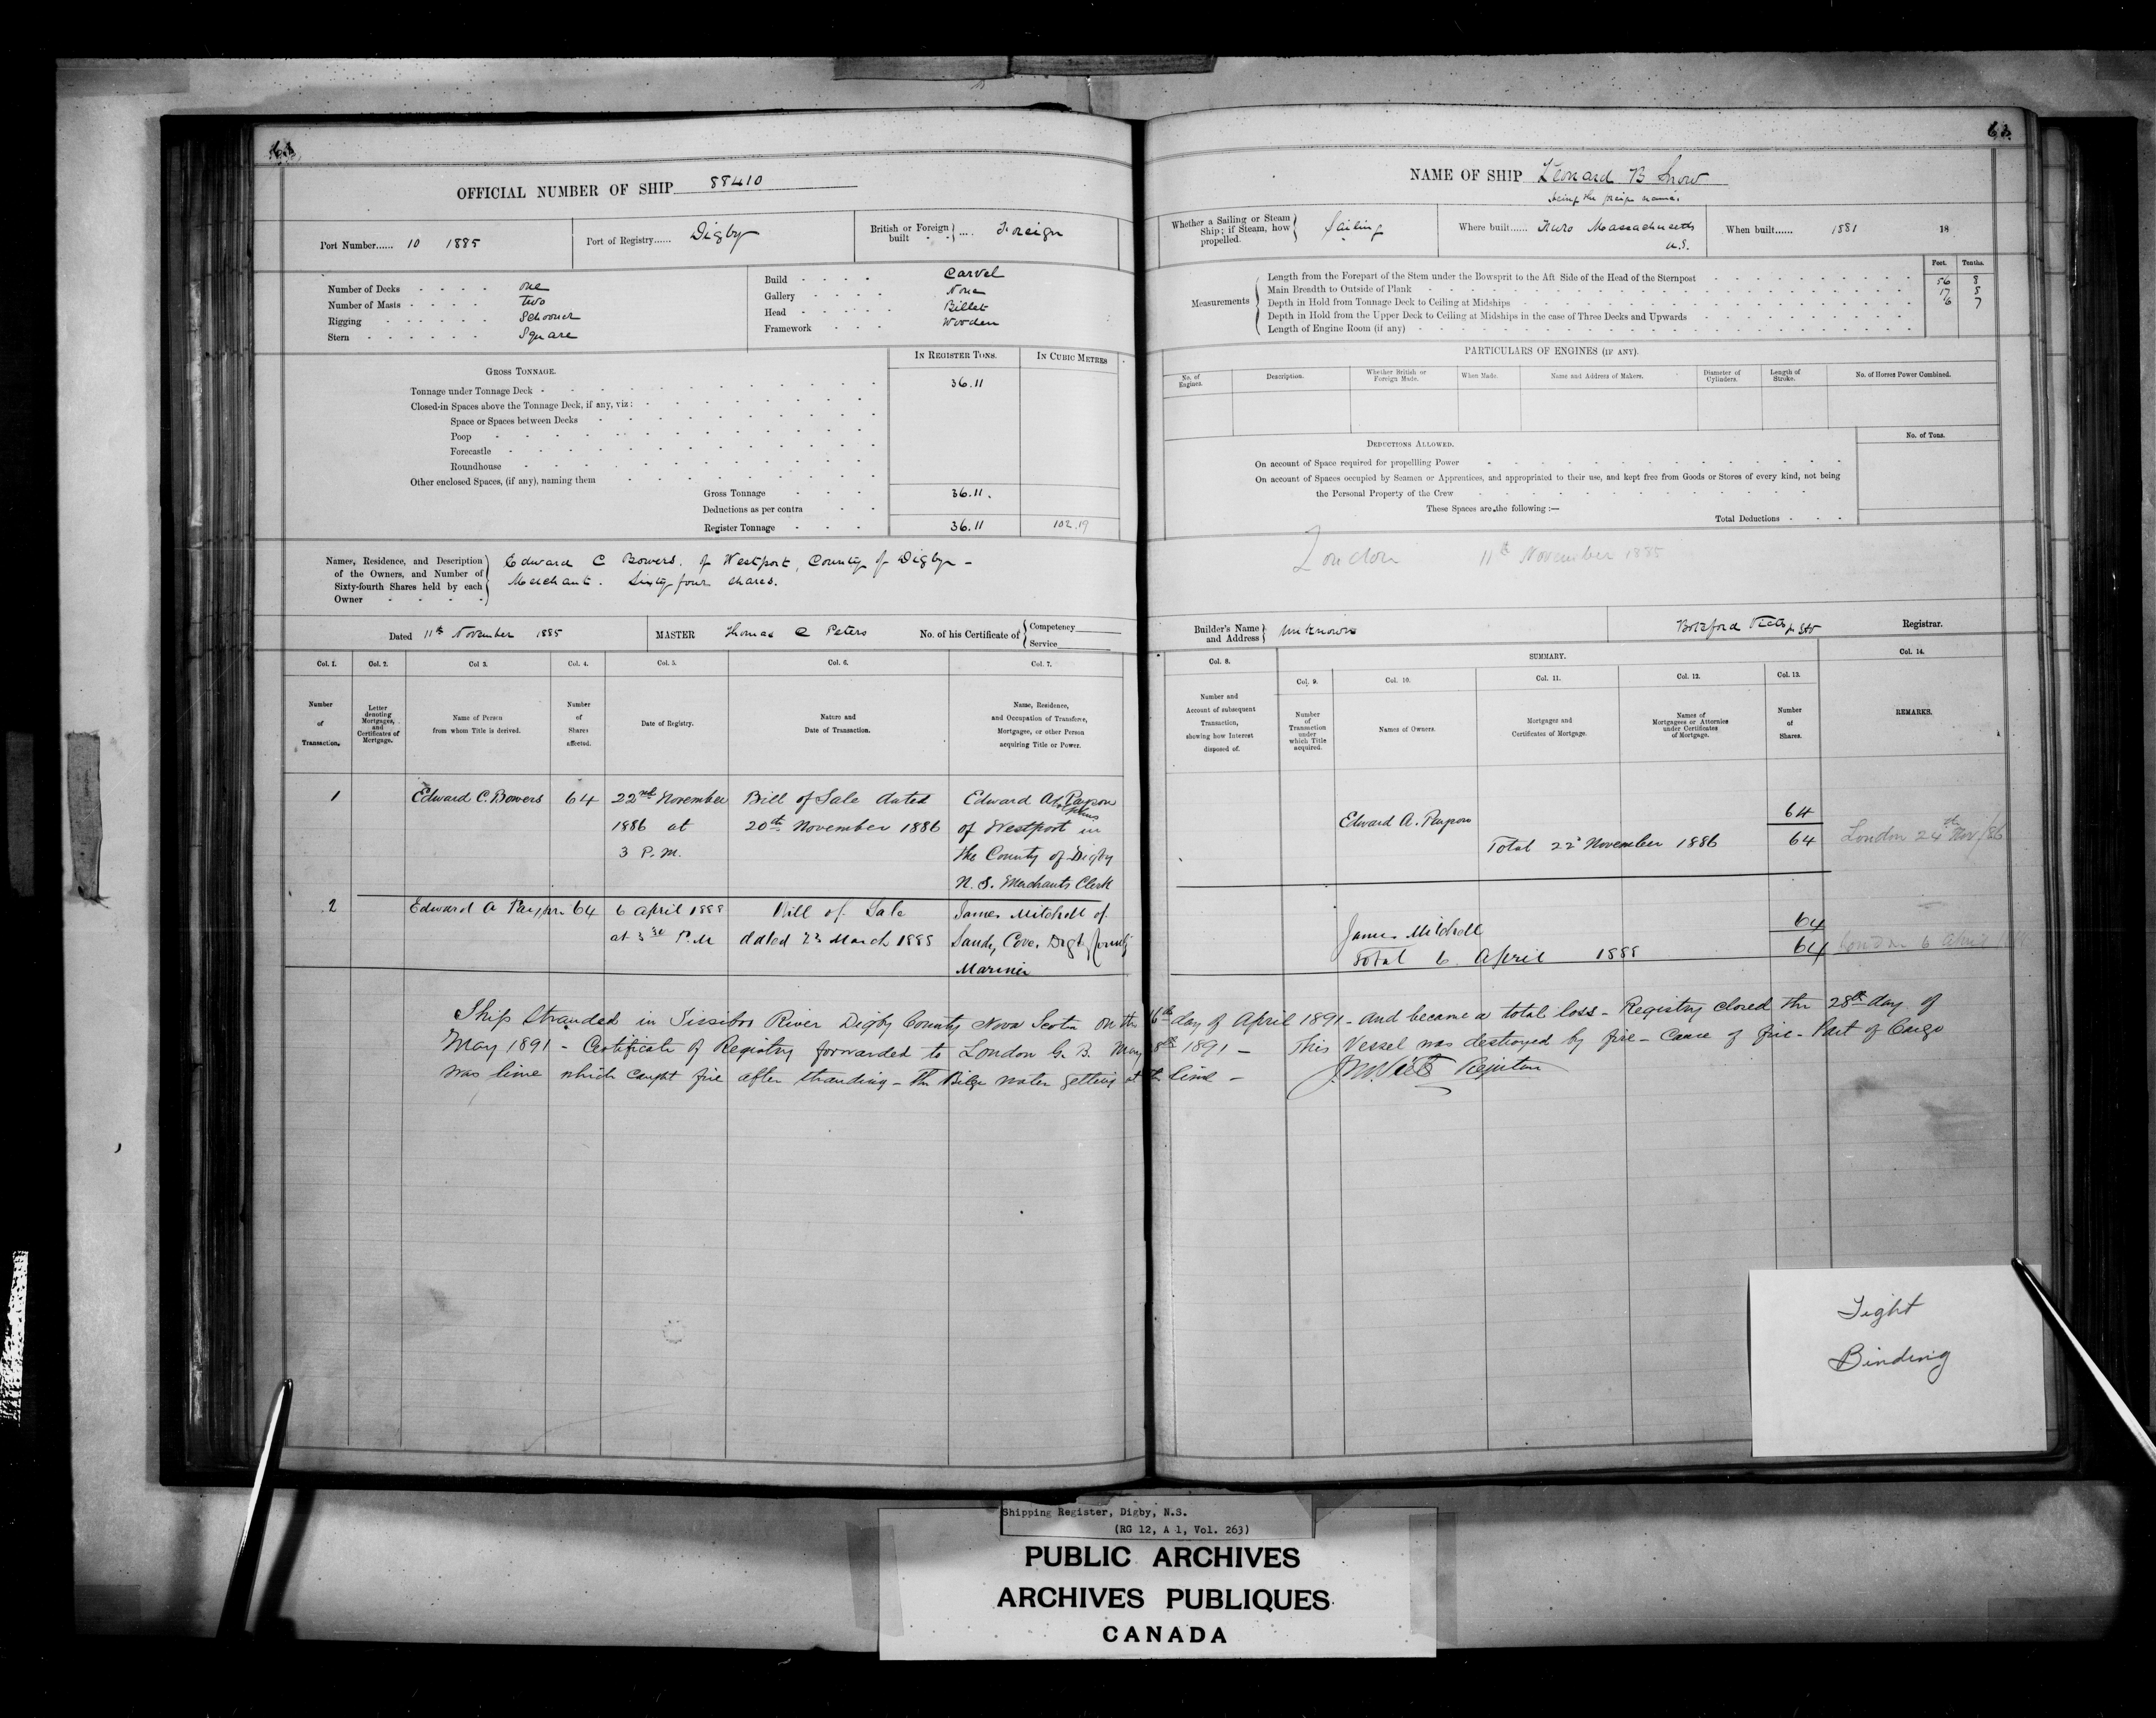 OFFICIAL NUMBER OF SHIP 88410
Port Number...... 10 1885
Port of Registry...... Digby
British or Foreign built .... Foreign
Number of Decks - - - - one
Number of Masts - - - - Two
Rigging - - - - - - Schooner
Stern - - - - - - Square
Build - - - - Carvel
Gallery - - - - None
Head - - - - - Billet
Framework - - - Wooden
IN REGISTER TONS.
IN CUBIC METRES
GROSS TONNAGE.
Tonnage under Tonnage Deck - 36.11
Closed-in Spaces above the Tonnage Deck, if any, viz:
Space or Spaces between Decks
Poop
Forecastle
Roundhouse
Other enclosed Spaces, (if any), naming them
Gross Tonnage 36.11.
Deductions as per contra
Register Tonnage 36.11 102.19
Names, Residence, and Description
of the Owners, and Number of
Sixty-fourth Shares held by each
Owner
Edward C Bowers, of Westport, County of Digby -
Merchant. Sixty four shares.
Dated 11th November 1885
MASTER Thomas C Peters
No. of his Certificate of Competency
Service
Col. 1. Col. 2. Col 3. Col. 4. Col. 5. Col. 6. Col. 7.
Number of Transaction.
Letter denoting Mortgages, and Certificates of Mortgage.
Name of Person from whom Title is derived.
Number of Shares affected.
Date of Registry.
Nature and Date of Transaction.
Name, Residence, and Occupation of Transferee, Mortgagee, or other Person acquiring Title or Power.
1 Edward C. Bowers 64 22nd November Bill of Sale dated Edward A. Payson
1886 at 20th November 1886 of Westport in
3 P.M. the County of Digby
N.S. Merchants Clerk
2 Edward A Payson 64 6 April 1888 Bill of Sale James Mitchell of
at 3 30 P.M dated 23 March 1888 Sandy Cove, Digby County
Mariner
NAME OF SHIP Leonard B Snow
being the foreign name.
Whether a Sailing or Steam Ship; if Steam, how propelled. Sailing
Where built...... Truro Massachusetts
U.S.
When built...... 1881 18
Feet. Tenths.
Measurements
Length from the Forepart of the Stem under the Bowsprit to the Aft Side of the Head of the Sternpost 56 8
Main Breadth to Outside of Plank 17 8
Depth in Hold from Tonnage Deck to Ceiling at Midships 6 7
Depth in Hold from the Upper Deck to Ceiling at Midships in the case of Three Decks and Upwards
Length of Engine Room (if any)
PARTICULARS OF ENGINES (IF ANY).
No. of Engines.
Description.
Whether British or Foreign Made.
When Made.
Name and Address of Makers.
Diameter of Cylinders.
Length of Stroke.
No. of Horses Power Combined.
DEDUCTIONS ALLOWED.
No. of Tons.
On account of Space required for propellling Power
On account of Spaces occupied by Seamen or Apprentices, and appropriated to their use, and kept free from Goods or Stores of every kind, not being
the Personal Property of the Crew
These Spaces are the following :—
Total Deductions
London 11th November 1885
Builder's Name and Address Unknown
Botsford Registrar.
Col. 8. SUMMARY. Col. 14.
Col. 9. Col. 10. Col. 11. Col. 12. Col. 13.
Number and Account of subsequent Transaction, showing how Interest disposed of.
Number of Transaction under which Title acquired.
Names of Owners.
Mortgages and Certificates of Mortgage.
Names of Mortgagees or Attornies under Certificates of Mortgage.
Number of Shares.
REMARKS.
Edward A. Payson 64
Total 22d November 1886 64 London 24th Nov/86
James Mitchell 64
Total 6 April 1888 64 London 6 April
Ship Stranded in Sissiboo River Digby County Nova Scotia on the 16th day of April 1891 - and became a total loss - Registry closed the 28th day of
May 1891 - Certificate of Registry forwarded to London G. B. May 1891 - This Vessel was destroyed by fire - Cause of fire - Part of Cargo
was lime which caught fire after stranding - The Bilge water getting at the lime - Registrar
Tight
Binding
Shipping Register, Digby, N.S.
(RG 12, A 1, Vol. 263)
PUBLIC ARCHIVES
ARCHIVES PUBLIQUES
CANADA